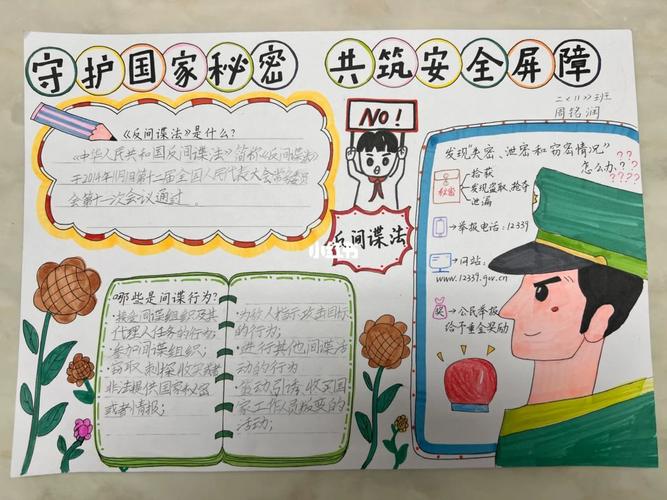 守护国家秘密 共筑安全屏障
二<11>班
周铭润
《反间谍法》是什么?
《中华人民共和国反间谍法》简称《反间谍法》
于2014年11月1日第十二届全国人民代表大会常务委员
会第十一次会议通过。
NO!
反间谍法
小红书
发现"失密、泄密和窃密情况"
怎么办???
????
秘密
→拾获
→发现盗取、抢夺
→泄漏
→举报电话:12339
→网站:
www.12339.gov.cn
奖
→公民举报
给予重金奖励
哪些是间谍行为?
·接受间谍组织及其
代理人任务的行为;
·参加间谍组织;
·窃取、刺探、收买或者
非法提供国家秘密
或者情报;
·为敌人指示攻击目标
的行为;
·进行其他间谍活
动的行为
·策动、引诱、收买国
家工作人员叛变的
活动;